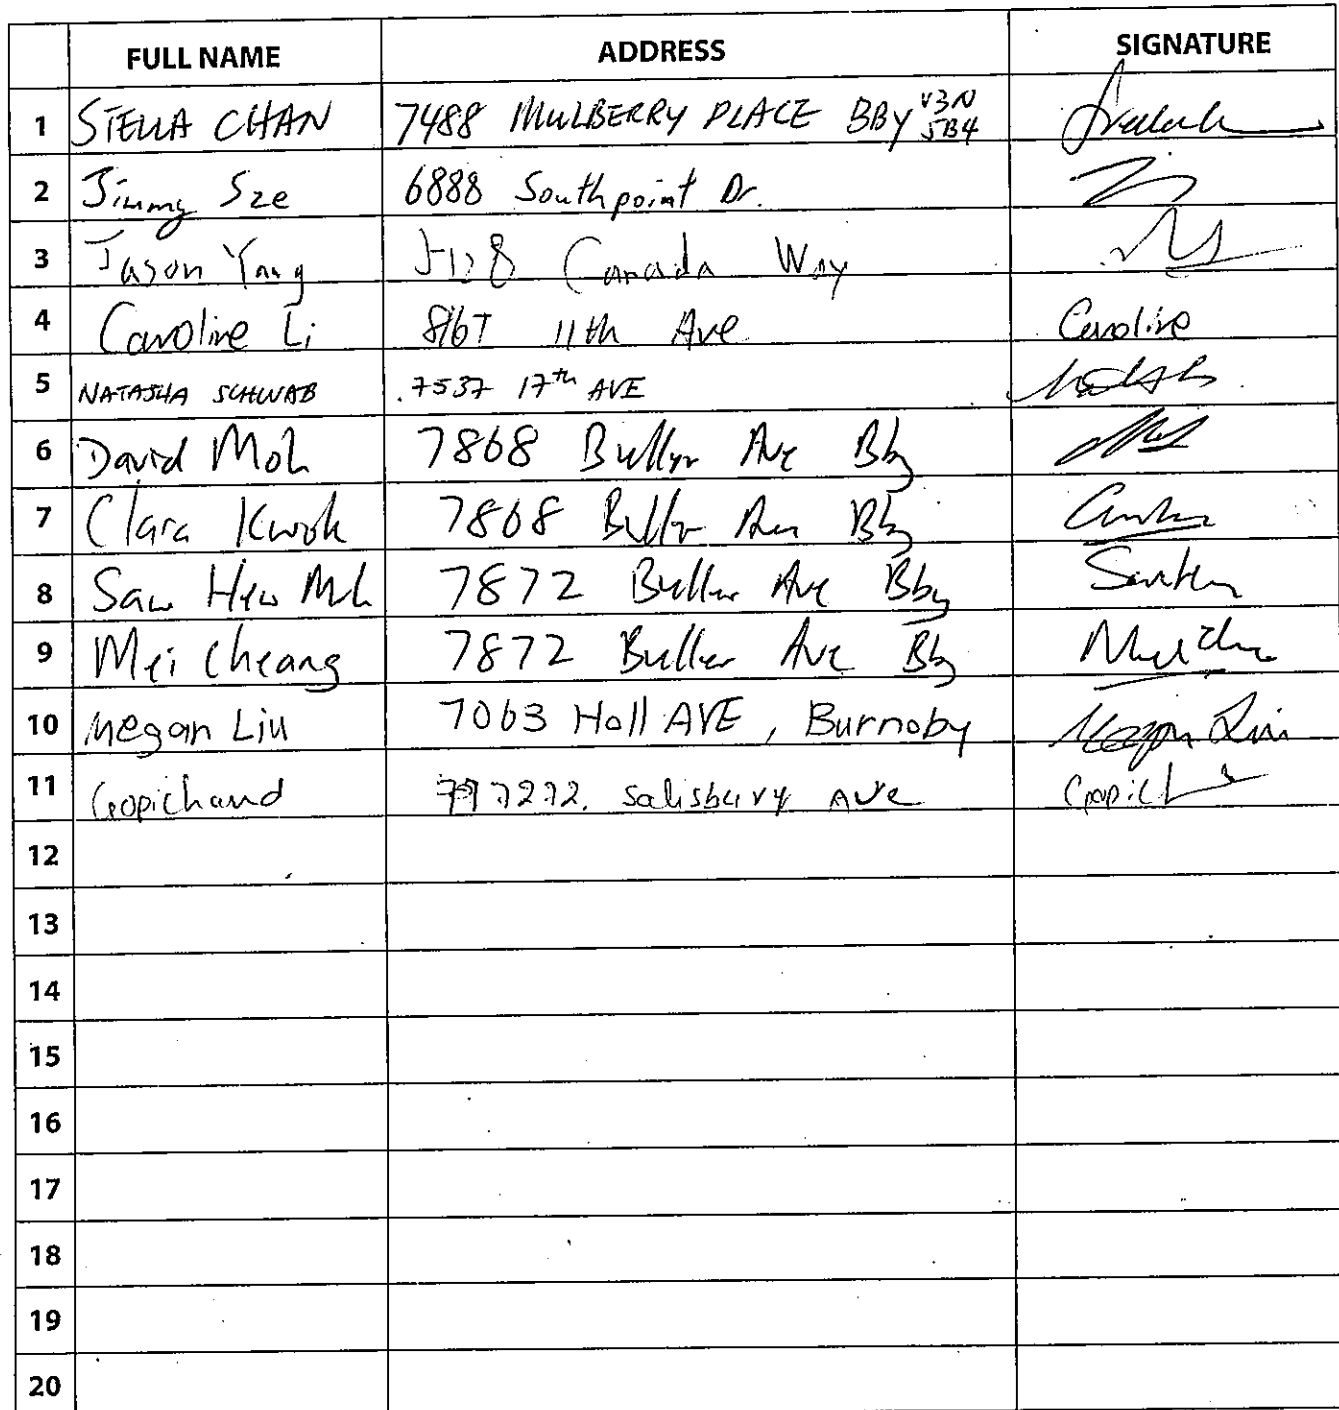 FULL NAME ADDRESS SIGNATURE
1 STELLA CHAN 7488 MULBERRY PLACE BBY V3N 5B4
2 Jimmy Sze 6888 Southpoint Dr.
3 Jason Yang Canada Way
4 Caroline Li 8167 11th Ave Caroline
5 NATASHA SCHWAB 7537 17th AVE
6 David Moh 7868 Buller Ave Bby
7 Clara Kwok 7868 Buller Ave Bby
8 Saw Hew Moh 7872 Buller Ave Bby
9 Mei Cheang 7872 Buller Ave Bby
10 Megan Liu 7063 Hall AVE, Burnaby Megan Liu
11 Gopichand 7272. Salisbury Ave
12
13
14
15
16
17
18
19
20